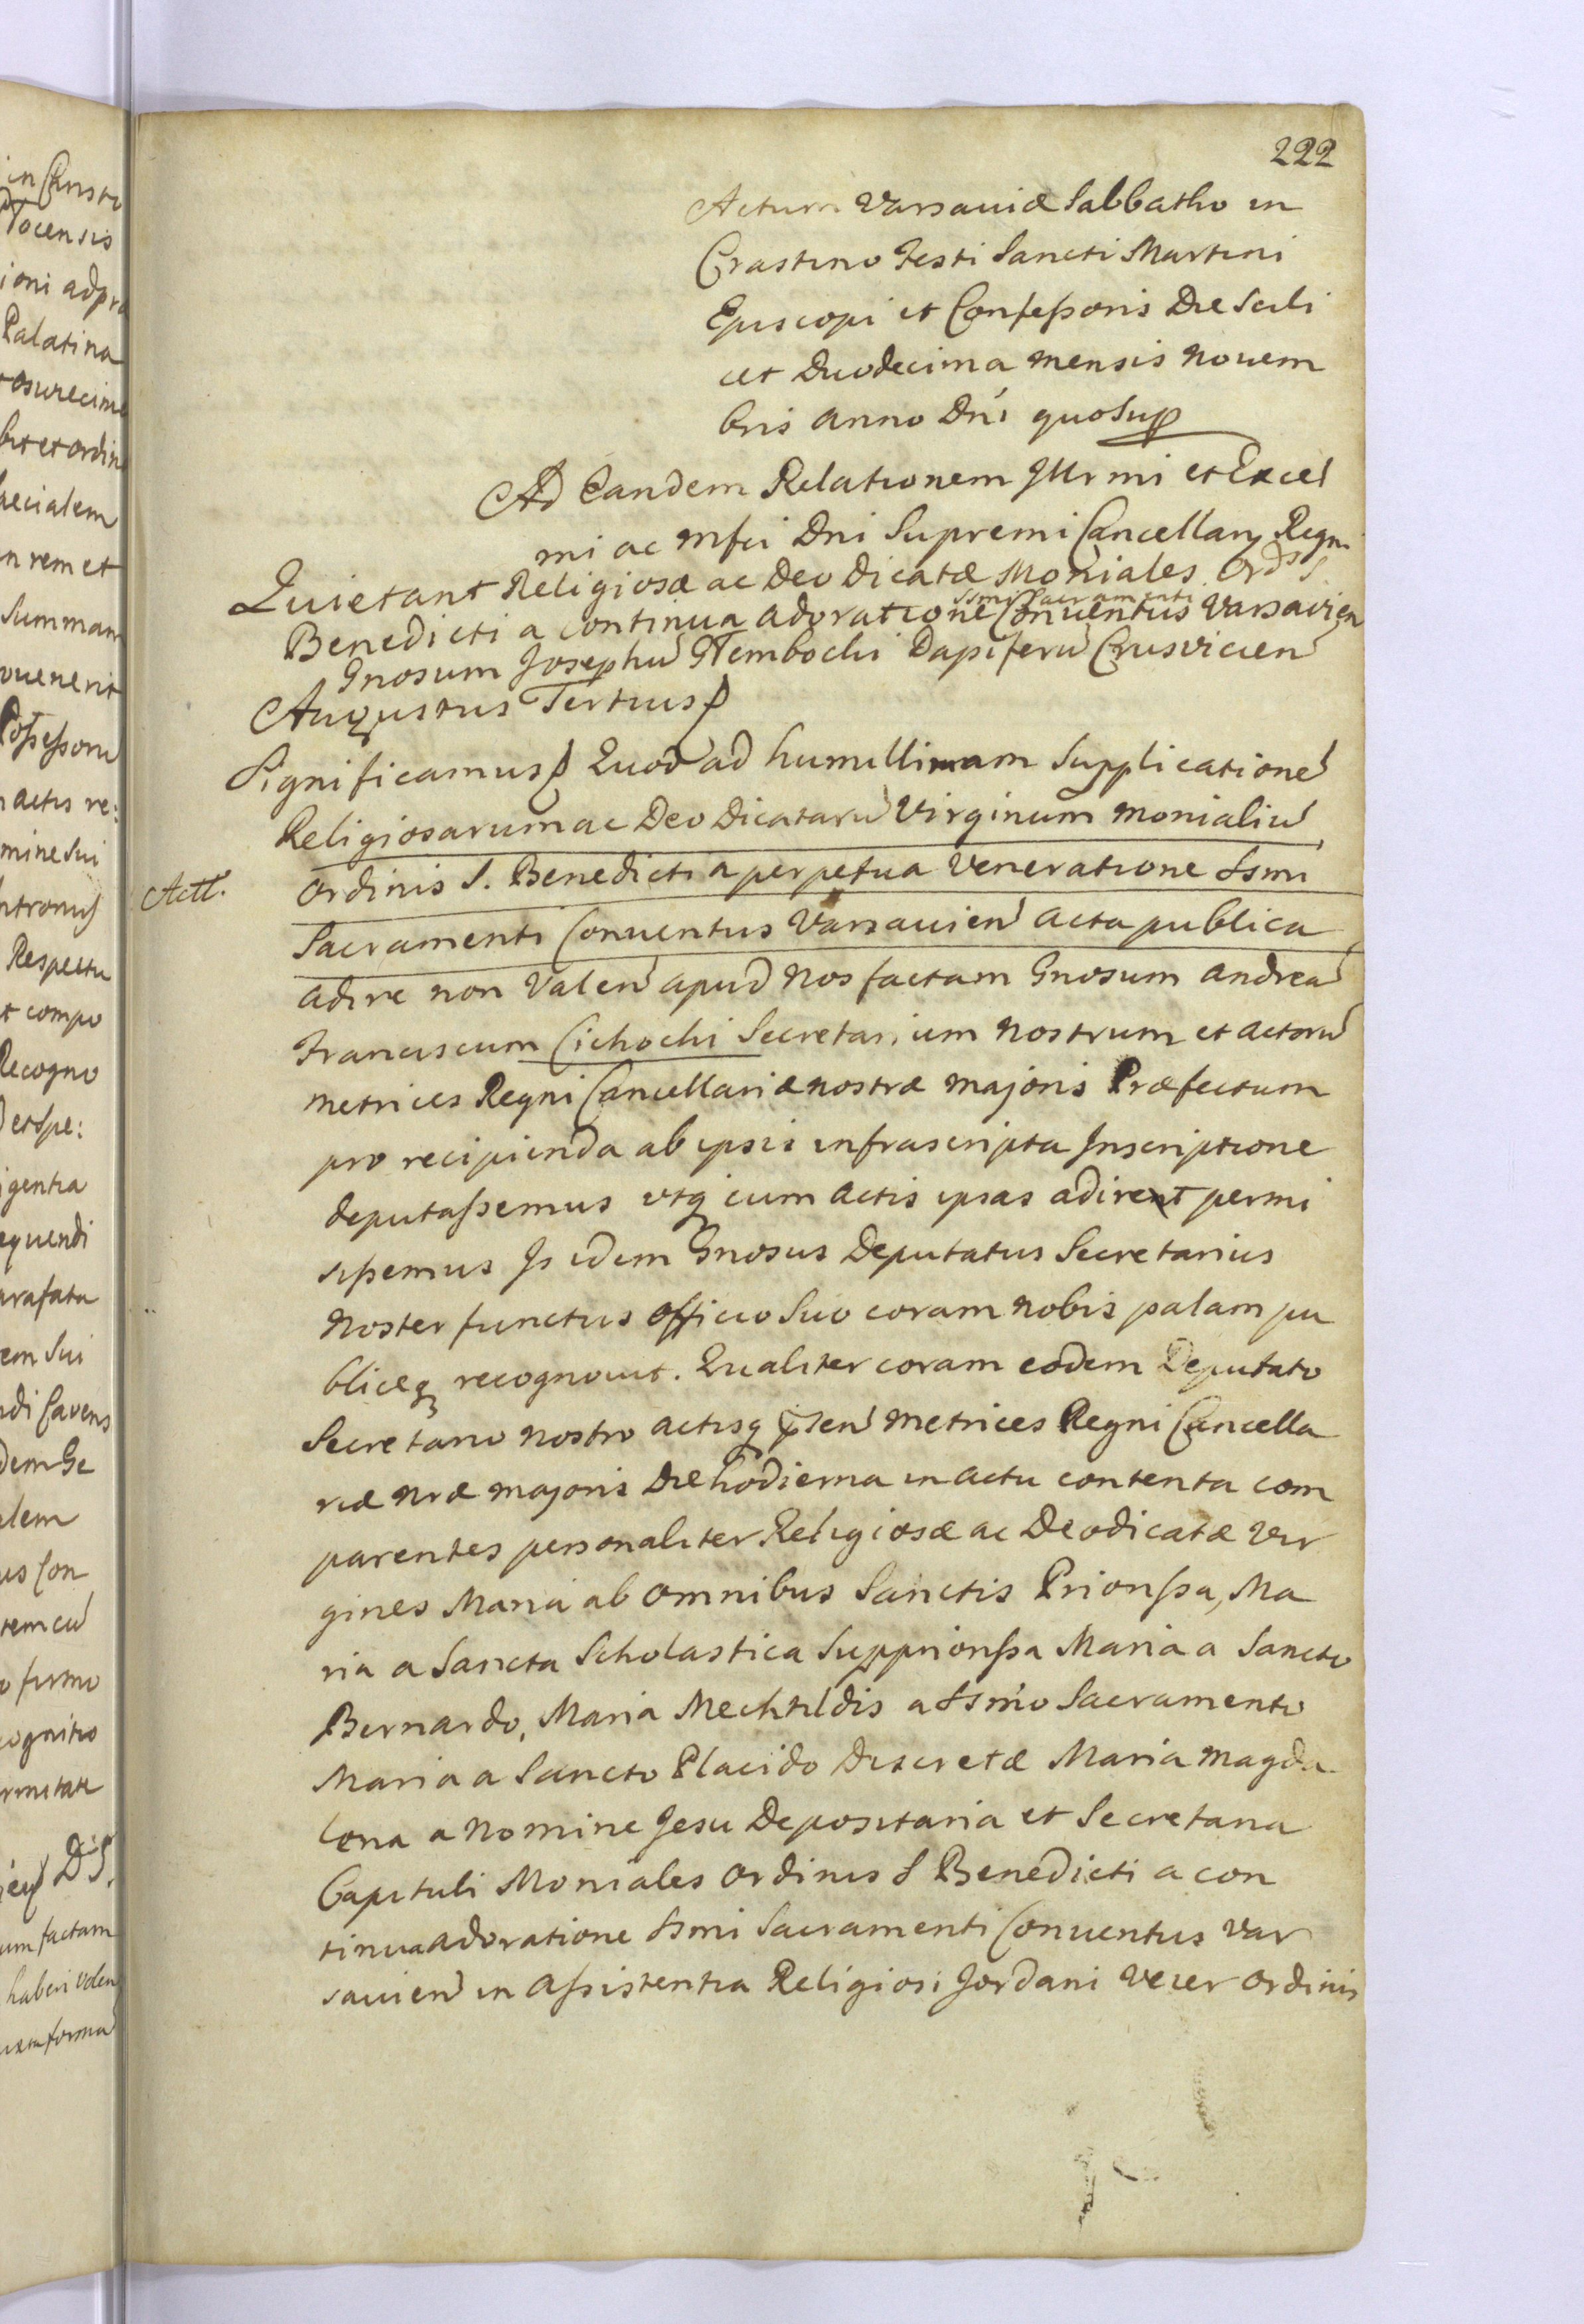 222
Actum Varsaviæ Sabbatho in
Crastino Festi Sancti Martini
Episcopi et Confeſsoris Die Scili
cet Duodecima mensis novem
bris anno Dni quo Sup
Ad Eandem Relationem Jllrmi et Excel
mi ac Mfci Dni Supremi Cancellarij Regni
Quietant Religiosæ ac Deo Dicatæ Moniales Ordis S.
Ssmi Sacramenti
Benedicti a continua adoratione Conventus Varsavien
Gnosum Josephu Stembochi Dapiferu Crusvicien
Augustus Tertius
Significamus Quod ad humillimam Supplicatione
Religiosarum ac Deo Dicataru Virginum monialiu
Actt.
Ordinis S. Benedicti a perpetua Veneratione Ssmi
Sacramenti Conventus Varsavien acta publica
adire non Valen apud Nos factam Gnosum Andrea
Franciscum Cichochi Secretarium nostrum et actoru
metrices Regni Cancellariæ nostræ majoris Præfectum
pro recipienda ab ipsis infrascripta Jnscriptione
deputaſsemus utq cum actis ipsas adirent permi
siſsemus Js idem Gnosus Deputatus Secretarius
noster functus officio Suo coram nobis palam pu
bliceq recognovit. Qualiter coram eodem Deputato
Secretario nostro actisq pnten metrices Regni Cancella
riæ nræ majoris Die hodierna in actu contenta com
parentes personaliter Religiosæ ac Deodicatæ Vir
gines Maria ab Omnibus Sanctis Prioriſsa, Ma
ria a Sancta Scholastica Supprioriſsa Maria a Sancto
Bernardo, Maria Mechtildis a Ssmo Sacramento
Maria a Sancto Placido Discretæ Maria Magda
lena a Nomine Jesu Depositaria et Secretaria
Capituli Moniales Ordinis S Benedicti a con
tinua adoratione Ssmi Sacramenti Conventus Var
savien in Aſsistentia Religiosi Jordani Vecer Ordinis